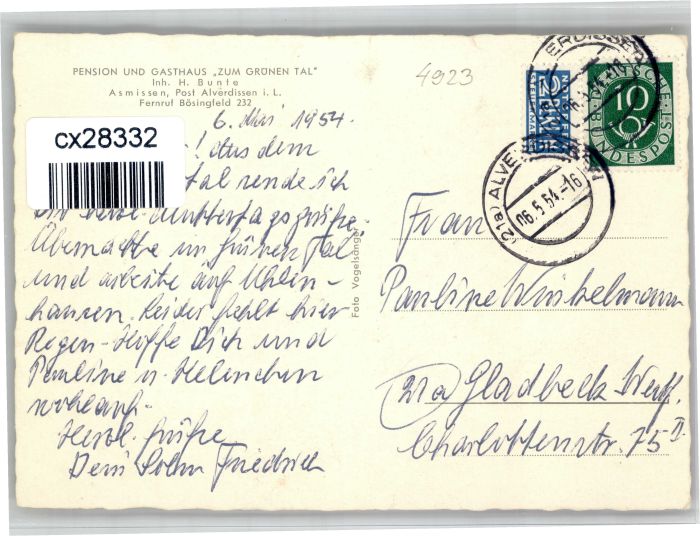 PENSION UND GASTHAUS „ZUM GRÜNEN TAL"
Inh. H. Bunte
Asmissen, Post Alverdissen i. L.
Fernruf Bösingfeld 232
4923
6. Mai 1954.
cx28332
! Aus dem
tal sende ich
Dir herzl. Muttertagsgrüße.
Übernachte im grünen Tal
und arbeite auf Uhlen-
hausen. Leider fehlt hier
Regen - Hoffe Dich und
Pauline u. Helenchen
wohlauf.
Herzl. Grüße
Dein Sohn Friedrich
Foto Vogelsänger
ERDISSEN
2
10
DEUTSCHE BUNDESPOST
(21a) ALVE
06.5.54.-16
Frau
Pauline Winkelmann
21a Gladbeck Westf.
Charlottenstr. 75 II.